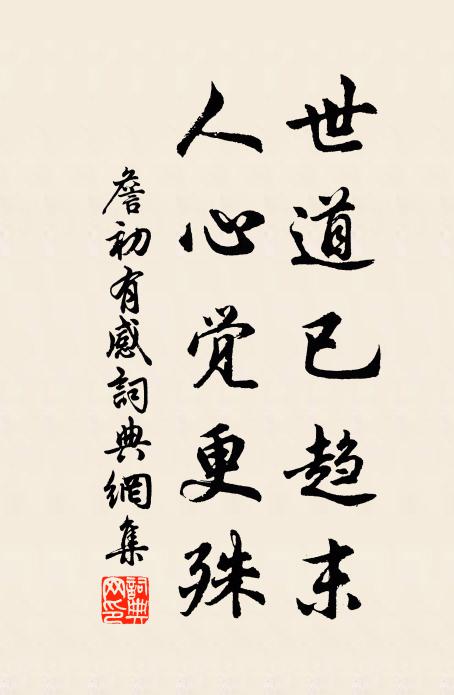 世道已趋末
人心觉更殊
詹初有感詞典網集
詞典网印